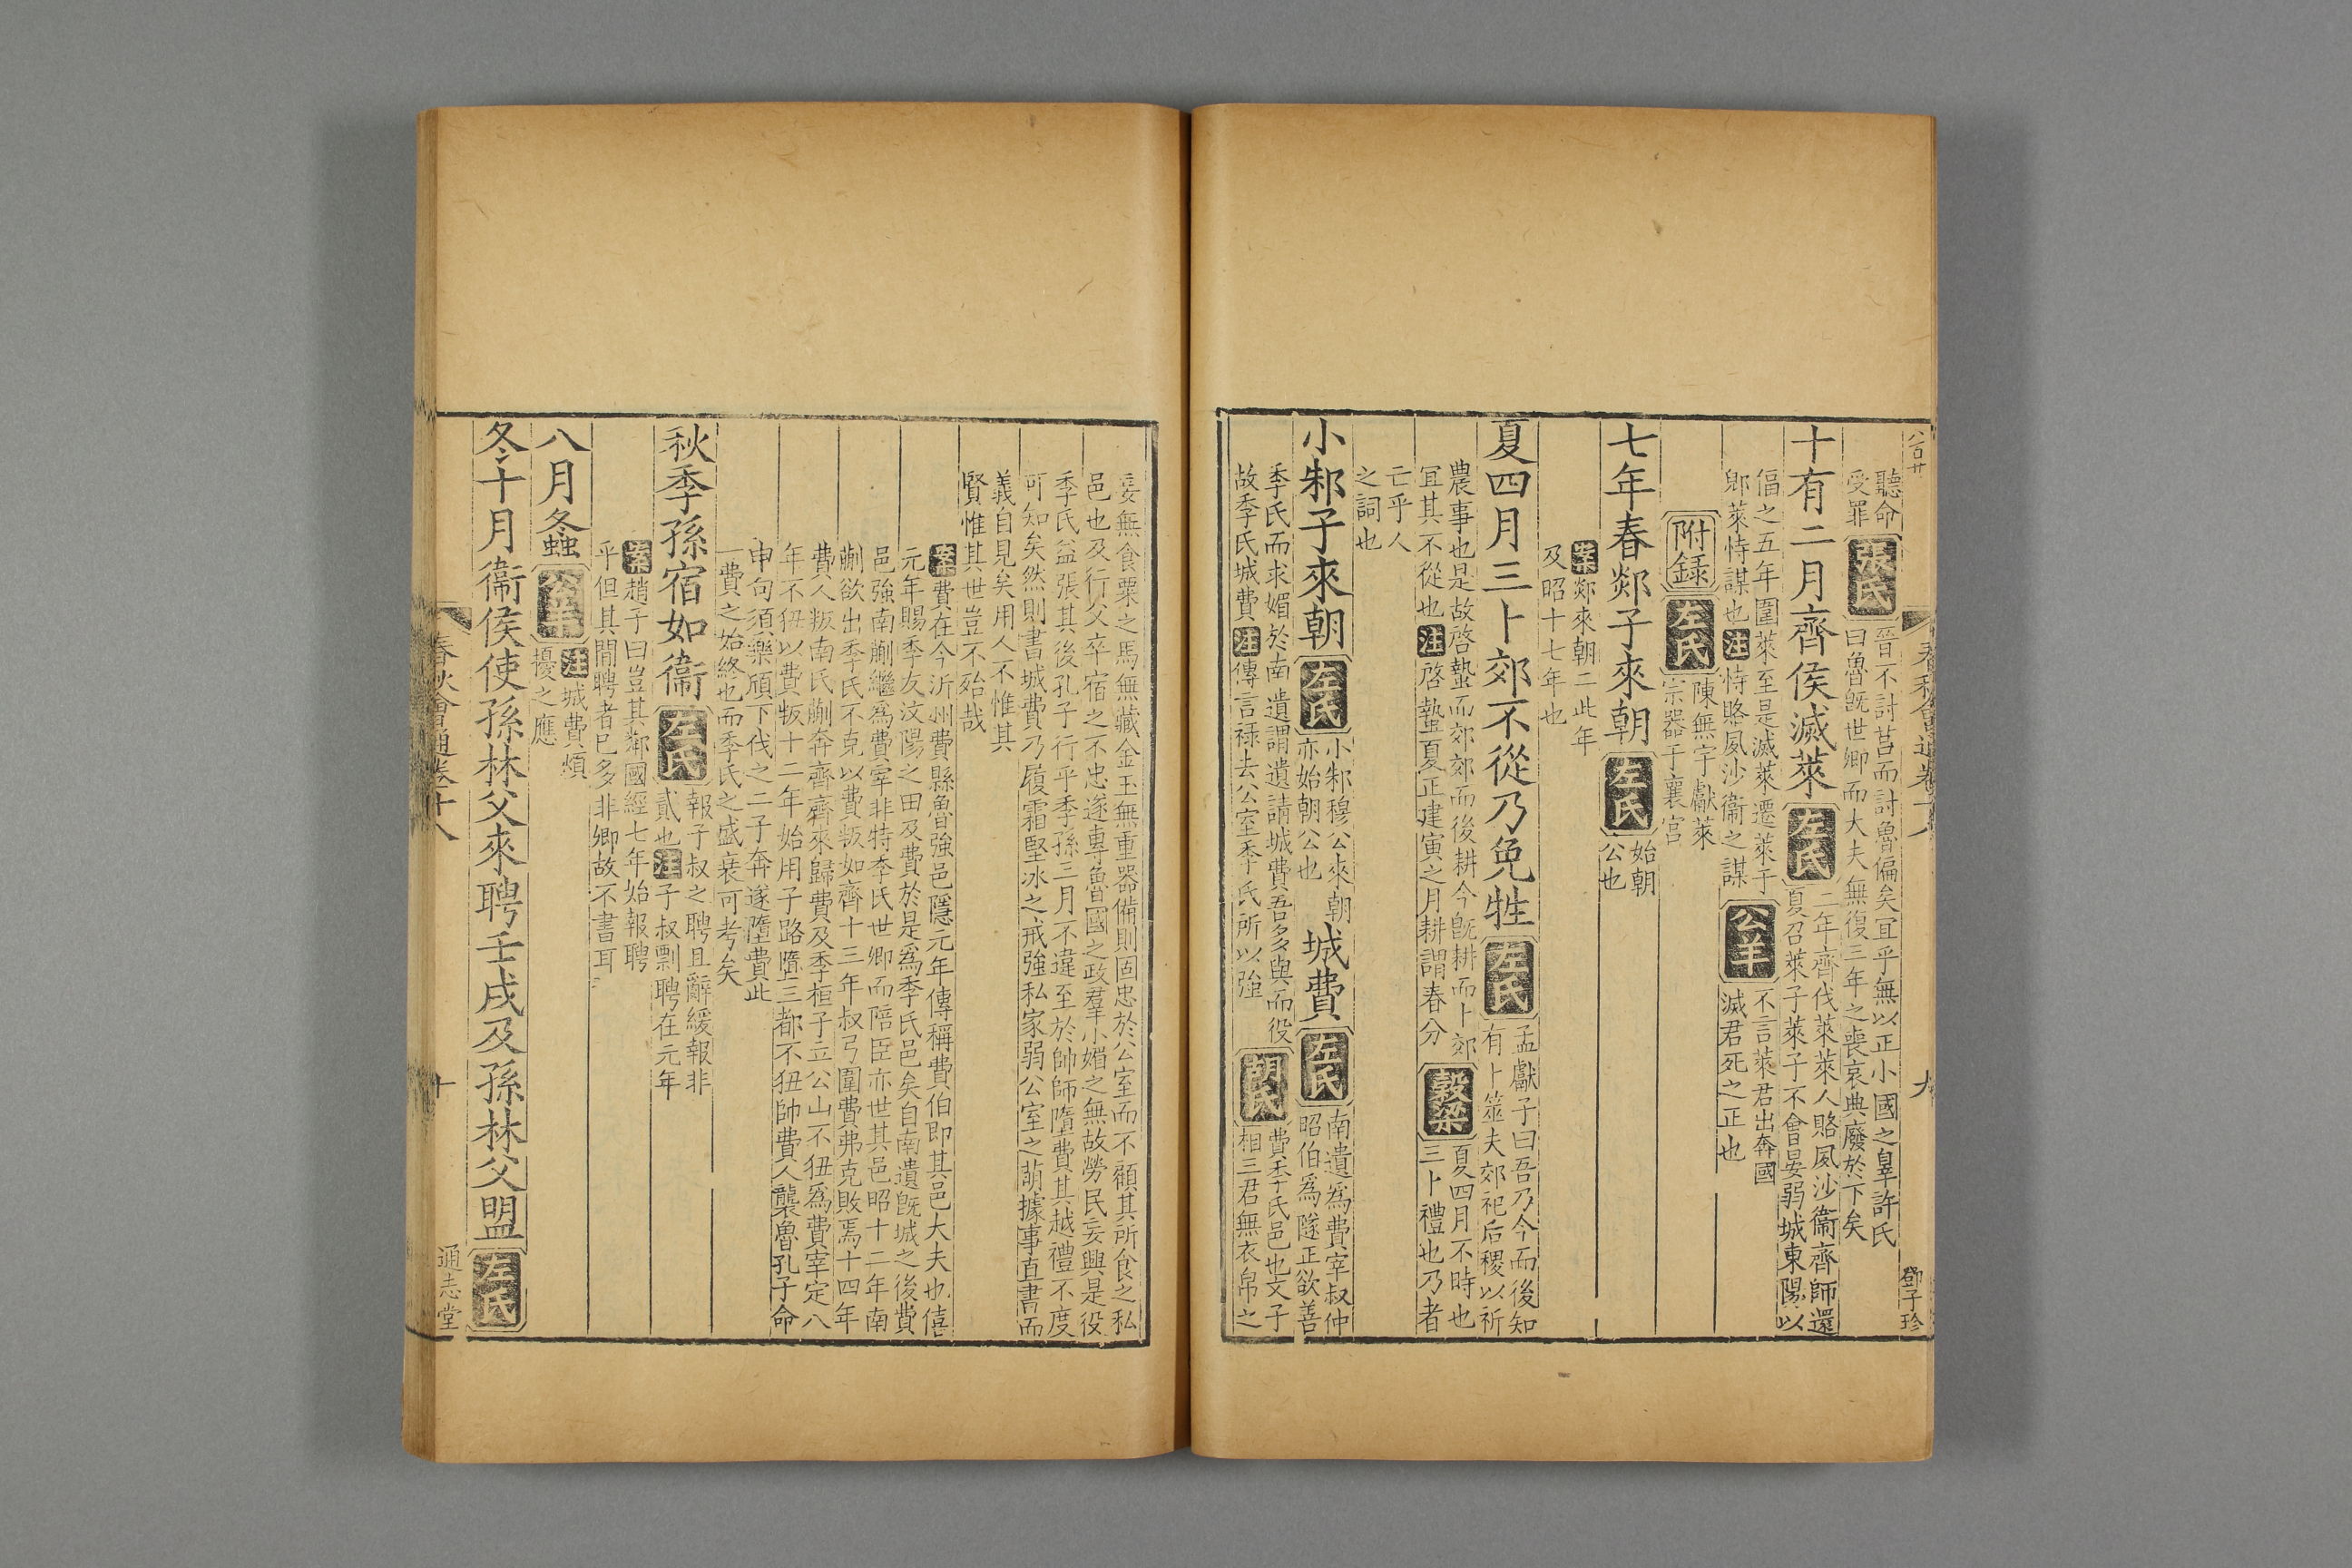 八百廿
春秋會通卷十八
九
鄧子珍
聽命張氏晉不討莒而討魯偏矣宜乎無以正小國之辠許氏
受罪曰魯旣世卿而大夫無復三年之喪哀典廢於下矣
十有二月齊侯滅萊左氏二年齊伐萊萊人賂夙沙衞齊師還
夏召萊子萊子不會晏弱城東陽以
偪之五年圍萊至是滅萊遷萊于公羊不言萊君出奔國
郳萊恃謀也注恃賂夙沙衞之謀滅君死之正也
附錄左氏陳無宇獻萊
宗器于襄宮
七年春郯子來朝左氏始朝
公也
案郯來朝二此年
及昭十七年也
夏四月三卜郊不從乃免牲左氏孟獻子曰吾乃今而後知
有卜筮夫郊祀后稷以祈
農事也是故啓蟄而郊郊而後耕今旣耕而卜郊穀梁夏四月不時也
宜其不從也注啓蟄夏正建寅之月耕謂春分三卜禮也乃者
亡乎人
之詞也
小邾子來朝左氏小邾穆公來朝
亦始朝公也
城費左氏南遺爲費宰叔仲
昭伯爲隧正欲善
季氏而求媚於南遺謂遺請城費吾多與而役胡氏費季氏邑也文子
故季氏城費注傳言祿去公室季氏所以強相三君無衣帛之
妾無食粟之馬無藏金玉無重器備則固忠於公室而不顧其所食之私
邑也及行父卒宿之不忠遂專魯國之政羣小媚之無故勞民妄興是役
季氏益張其後孔子行乎季孫三月不違至於帥師墮費其越禮不度
可知矣然則書城費乃履霜堅冰之戒強私家弱公室之萌據事直書而
義自見矣用人不惟其
賢惟其世豈不殆哉
案費在今沂州費縣魯強邑隱元年傳稱費伯即其邑大夫也僖
元年賜季友汶陽之田及費於是爲季氏邑矣自南遺旣城之後費
邑強南蒯繼爲費宰非特季氏世卿而陪臣亦世其邑昭十二年南
蒯欲出季氏不克以費叛如齊十三年叔弓圍費弗克敗焉十四年
費人叛南氏蒯奔齊齊來歸費及季桓子立公山不狃爲費宰定八
年不狃以費叛十二年始用子路墮三都不狃帥費人襲魯孔子命
申句須樂頎下伐之二子奔遂墮費此
一費之始終也而季氏之盛衰可考矣
秋季孫宿如衞左氏報子叔之聘且辭緩報非
貳也注子叔剽聘在元年
案趙子曰豈其鄰國經七年始報聘
乎但其閒聘者已多非卿故不書耳
八月螽公羊注城費煩
擾之應
冬十月衞侯使孫林父來聘壬戌及孫林父盟左氏
春秋會通卷十八
十
通志堂